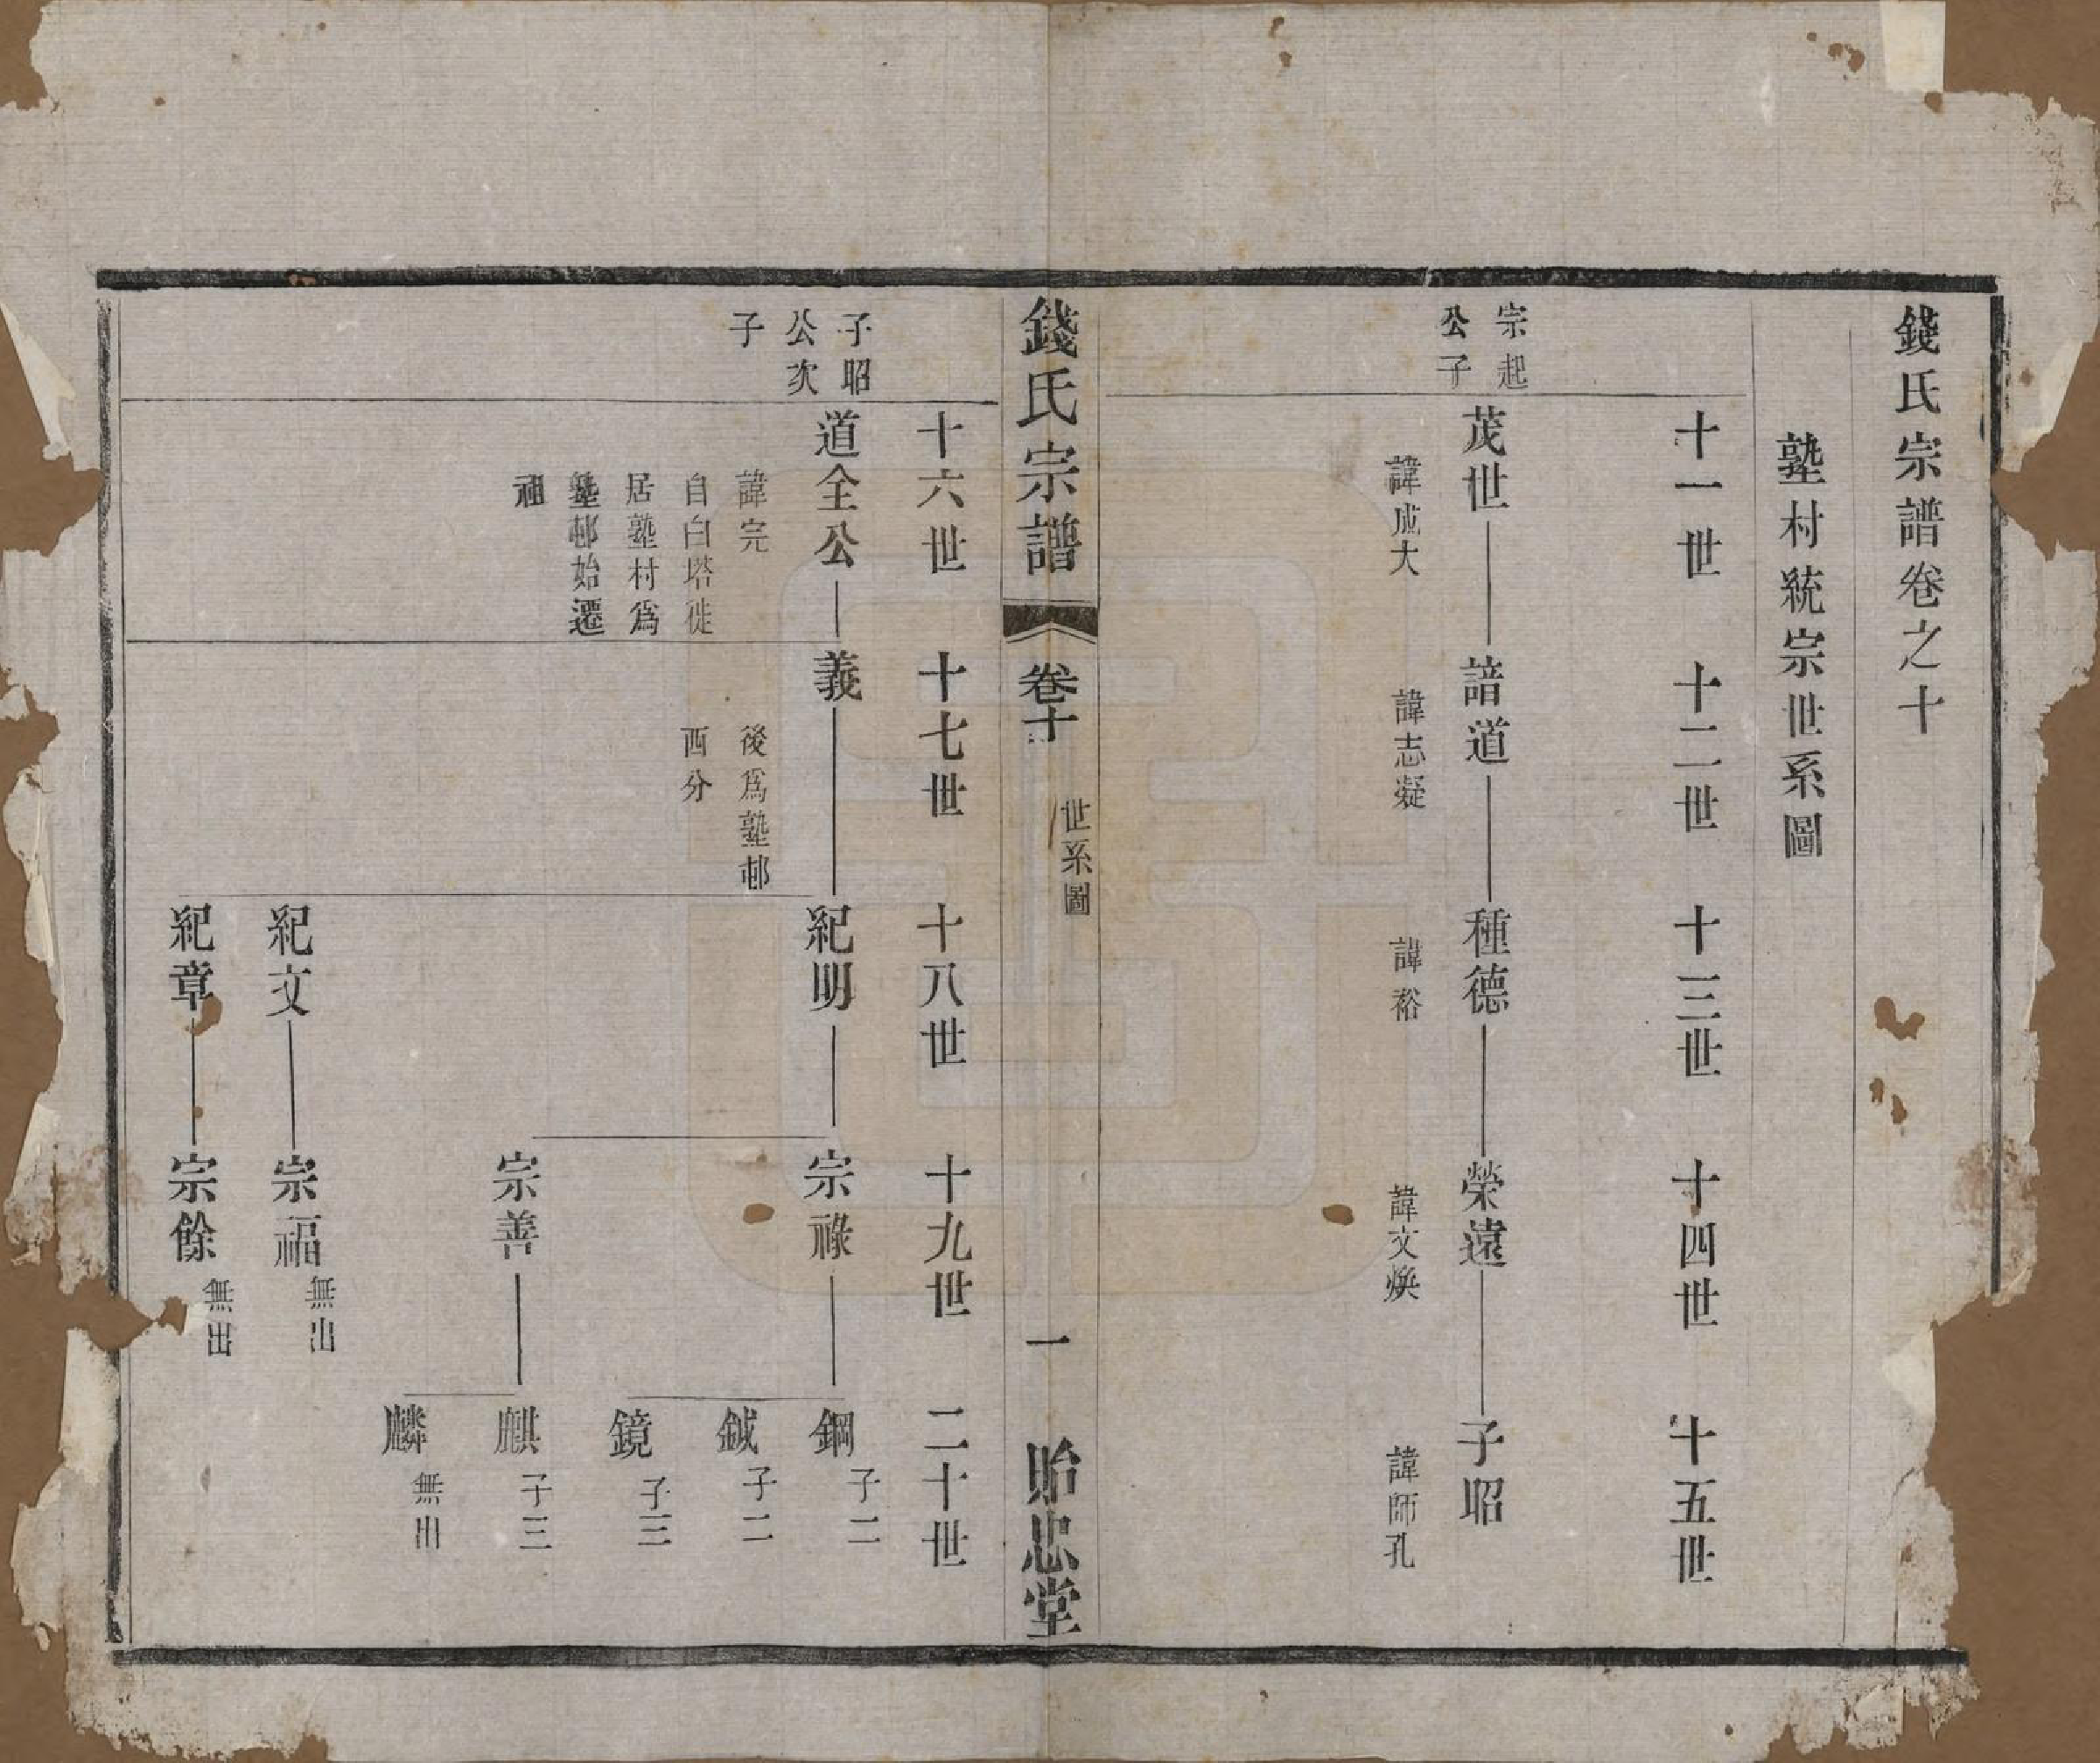 錢氏宗譜卷之十
塾村統宗世系圖
十一世 十二世 十三世 十四世 十五世
宗起
公子
茂世 諳道 種德 榮遠 子昭
諱成大 諱志凝 諱裕 諱文煥 諱師孔
錢氏宗譜 卷十 世系圖 一 貽忠堂
十六世 十七世 十八世 十九世 二十世
子昭
公次
子
道全公 義 紀明 宗祿 鋼 子二
諱完
自白塔徙
居塾村為
塾邨始遷
祖
後為塾邨
西分
鉞 子二
鏡 子三
宗善 麒 子三
麟 無出
紀文 宗福 無出
紀章 宗餘 無出